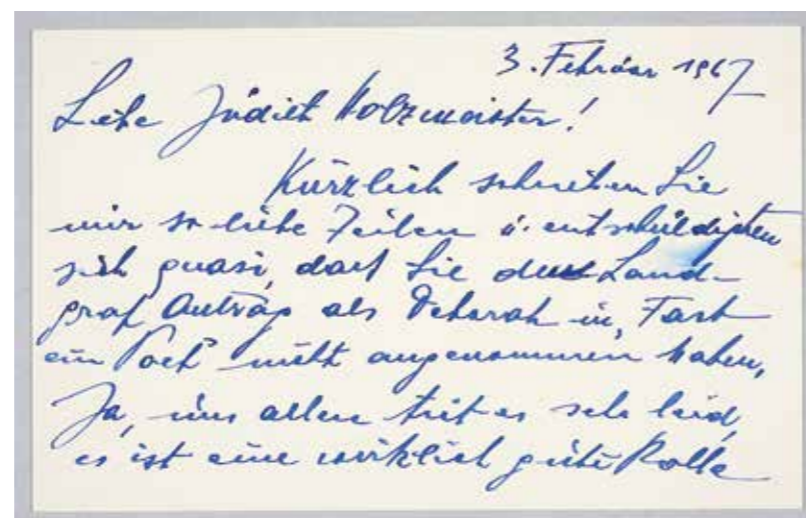 3. Februar 1967
Liebe Judith Holzmeister!
Kürzlich schrieben Sie
mir so liebe Zeilen u. entschuldigten
sich quasi, dass Sie den Land-
graf Antrag als Deborah in „Fast
ein Poet" nicht angenommen haben,
Ja, uns allen tut es sehr leid,
es ist eine wirklich gute Rolle